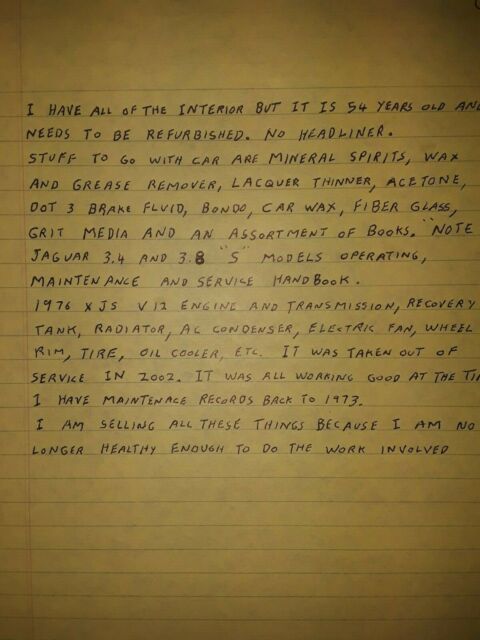 I HAVE ALL OF THE INTERIOR BUT IT IS 54 YEARS OLD AN
NEEDS TO BE REFURBISHED. NO HEADLINER.
STUFF TO GO WITH CAR ARE MINERAL SPIRITS, WAX
AND GREASE REMOVER, LACQUER THINNER, ACETONE,
DOT 3 BRAKE FLUID, BONDO, CAR WAX, FIBER GLASS,
GRIT MEDIA AND AN ASSORTMENT OF BOOKS. "NOTE
JAGUAR 3.4 AND 3.8 "S" MODELS OPERATING,
MAINTENANCE AND SERVICE HANDBOOK.
1976 XJS V12 ENGINE AND TRANSMISSION, RECOVERY
TANK, RADIATOR, AC CONDENSER, ELECTRIC FAN, WHEEL
RIM, TIRE, OIL COOLER, ETC. IT WAS TAKEN OUT OF
SERVICE IN 2002. IT WAS ALL WORKING GOOD AT THE TI
I HAVE MAINTENACE RECORDS BACK TO 1973.
I AM SELLING ALL THESE THINGS BECAUSE I AM NO
LONGER HEALTHY ENOUGH TO DO THE WORK INVOLVED